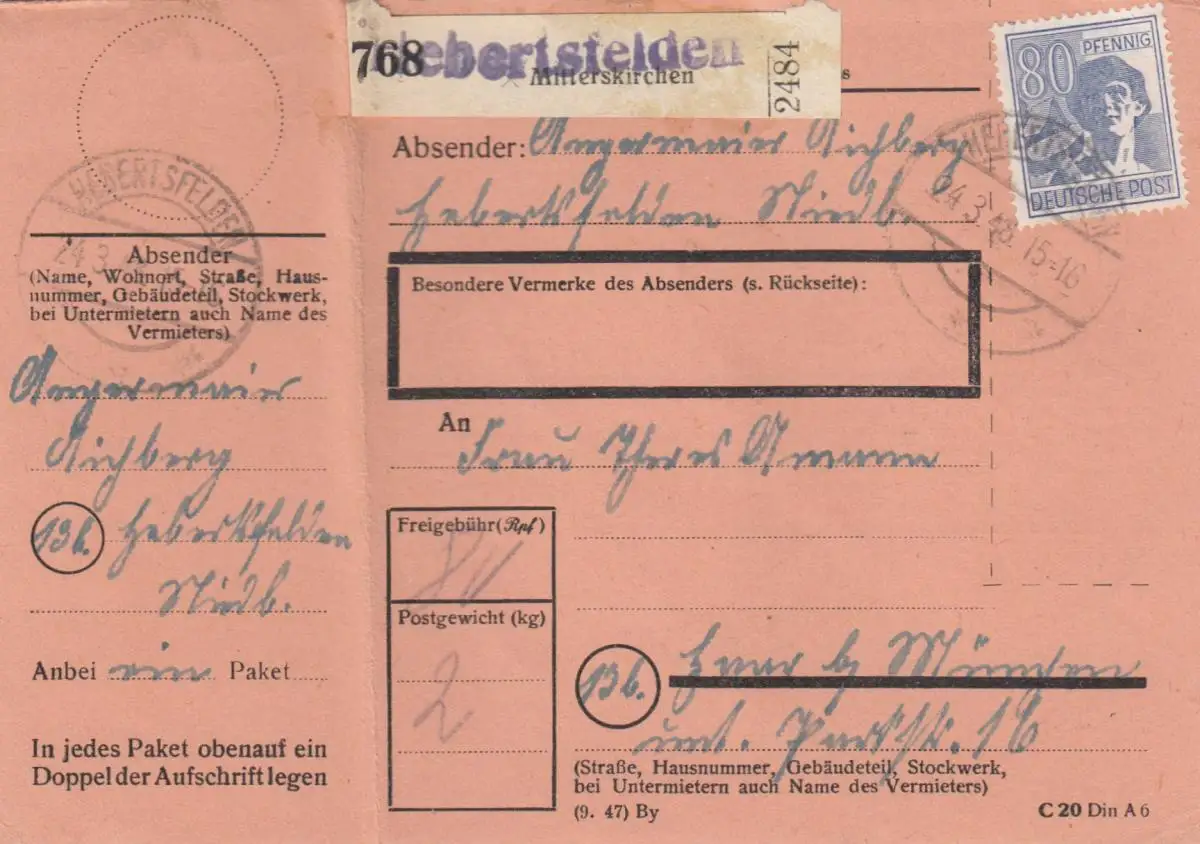 768 Hebertsfelden
Mitterskirchen
2484
80 PFENNIG
DEUTSCHE POST
HEBERTSFELDEN
24.3.48. 15-16
Absender: Angermaier Aichberg
Hebertsfelden Niedb.
HEBERTSFELDEN
24.3
Absender
(Name, Wohnort, Straße, Haus-
nummer, Gebäudeteil, Stockwerk,
bei Untermietern auch Name des
Vermieters)
Angermaier
Aichberg
13b. Hebertsfelden
Niedb.
Anbei ein Paket
In jedes Paket obenauf ein
Doppel der Aufschrift legen
Besondere Vermerke des Absenders (s. Rückseite):
An
Frau Theres Amann
Freigebühr (Rpf)
80
Postgewicht (kg)
2
13b. Haar b. München
unt. Parkstr. 16
(Straße, Hausnummer, Gebäudeteil, Stockwerk,
bei Untermietern auch Name des Vermieters)
(9. 47) By
C 20 Din A 6